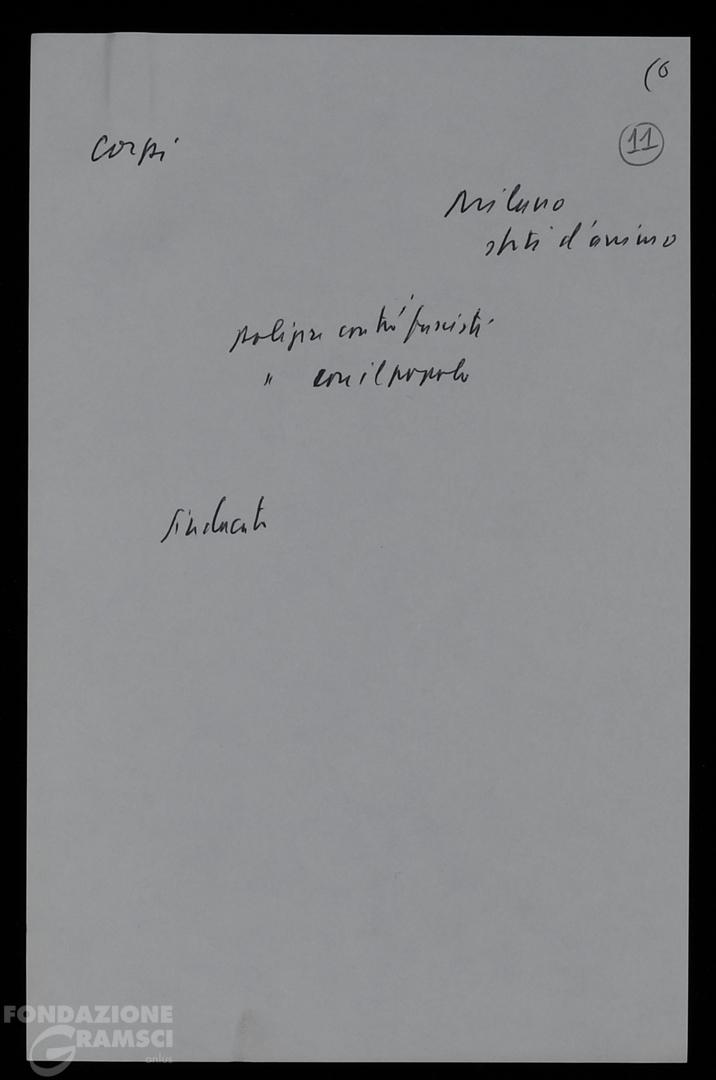 (6
11
corpi
Milano
stati d'animo
polizia contro fascisti
" con il popolo
sindacato
FONDAZIONE
GRAMSCI
onlus